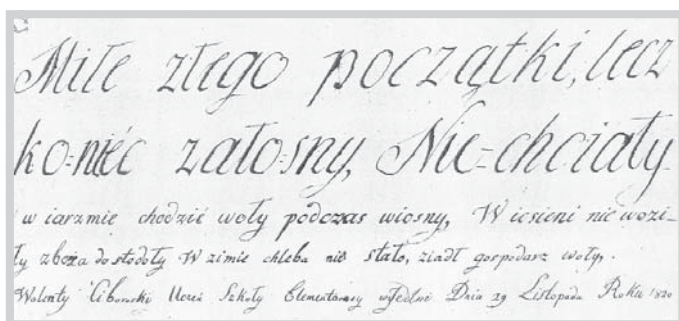 Miłe złego początki, lecz
ko=niec załо=sny, Nie=chciały
w iarzmie chodzić woły podczas wiosny, W iesieni nie wozi_
ły zboża do stodoły W zimie chleba nie stało, ziadł gospodarz woły,
Walenty Ciborowski Uczeń Szkoły Elementarney w Jedlni Dnia 29 Listopada Roku 1820